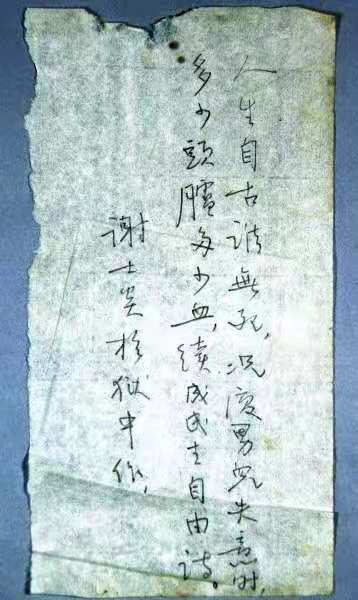 人生自古誰無死，况復男兒失意时，
多少頭臚多少血，續成民主自由詩。
謝士炎於獄中作，